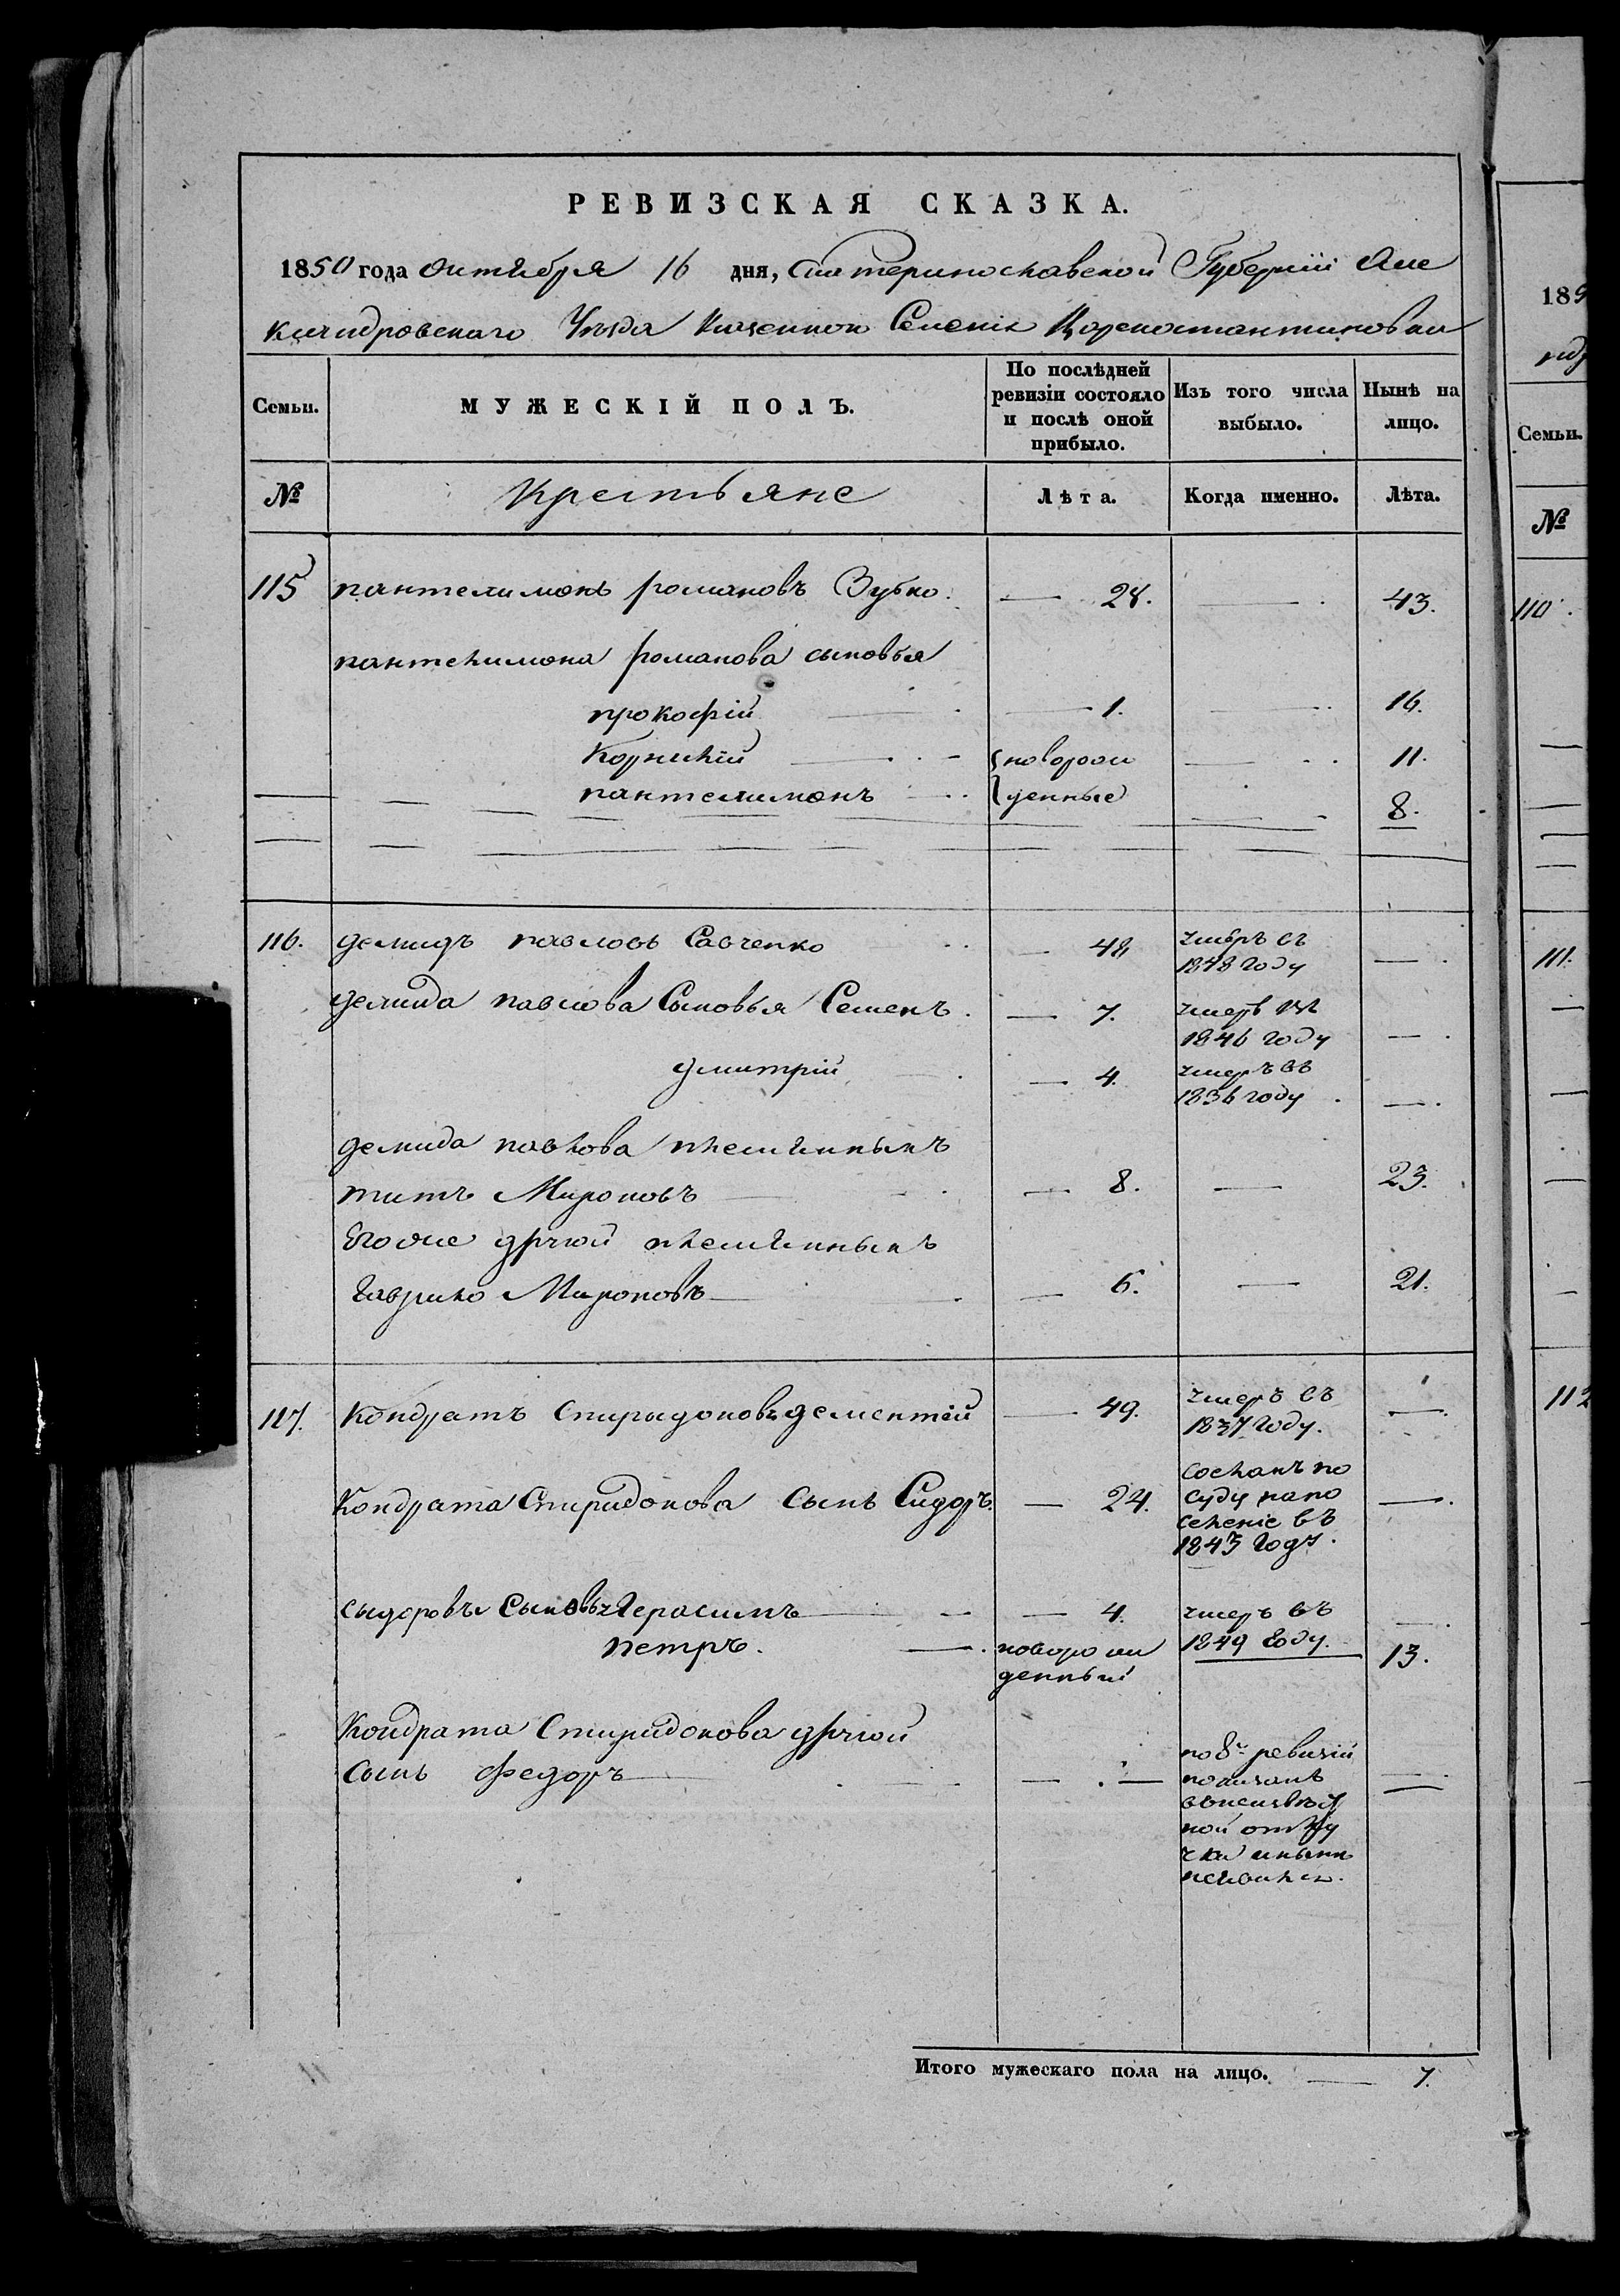 РЕВИЗСКАЯ СКАЗКА.
1850 года октября 16 дня, Екатеринославской Губерніи Алек
сандровскаго Уезда Казенной Селенія Цареконстантиновки
Семьи. МУЖЕСКІЙ ПОЛЪ. По послѣдней ревизіи состояло и послѣ оной прибыло. Изъ того числа выбыло. Нынѣ на лицо.
№ Крестьяне Лѣта. Когда именно. Лѣта.
115 пантелимонъ романовъ Зубко. 28. 43.
пантелимона романова сыновья
прокофій 1. 16.
Корнилій новорож 11.
пантелимонъ денные 8.
116. демидъ павловъ Савченко 48 умеръ въ
1848 году
демида павлова Сыновья Семенъ. 7. умеръ въ
1846 году
дмитрій 4. умеръ въ
1836 году
демида павлова племянныкъ
титъ Мироновъ 8. 23.
Егоже другой племянныкъ
гаврило Мироновъ 6. 21.
117. Кондратъ Спирыдоновъ дементій 49. умеръ въ
1837 году.
Кондрата Спиридонова сынъ Сидоръ. 24. сосланъ по
суду на по
селеніе въ
1843 году.
сыдоровы Сыновья Герасимъ 4. умеръ въ
петръ. новорож 1849 году. 13.
денный
Кондрата Спиридонова другой
сынъ федоръ по 8й ревизій
показанъ
въ неизвѣст
ной отлу
чки и нынѣ
неявился.
Итого мужескаго пола на лицо. 7.
185
Семьи.
№
110.
111.
112